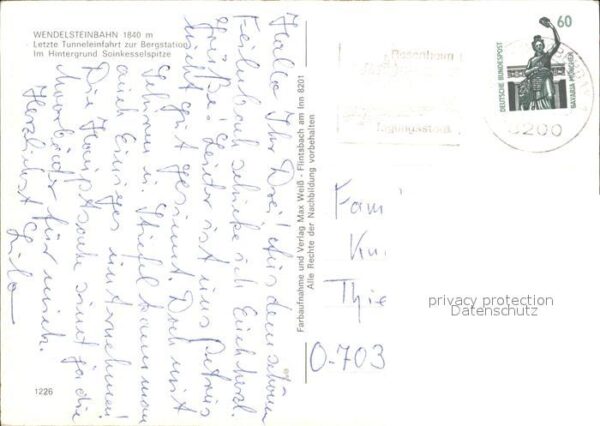 WENDELSTEINBAHN 1840 m
Letzte Tunneleinfahrt zur Bergstation
Im Hintergrund Soinkesselspitze
Hallo Ihr Drei! Aus dem schönen
Feilnbach schicke ich Euch herzl.
Grüße! Leider ist uns Petrus
nicht gut gesinnt. Doch mit
Schirm u. Stiefel kann man
auch Einiges unternehmen!
Die Hauptsache sind ja die
Moorbäder für mich.
Herzlichst
1226
Farbaufnahme und Verlag Max Weiß - Flintsbach am Inn 8201
Alle Rechte der Nachbildung vorbehalten
Rosenheim
Tagungsstadt
8200
60
DEUTSCHE BUNDESPOST
BAVARIA MÜNCHEN
Fam
Thie
O-703
privacy protection
Datenschutz